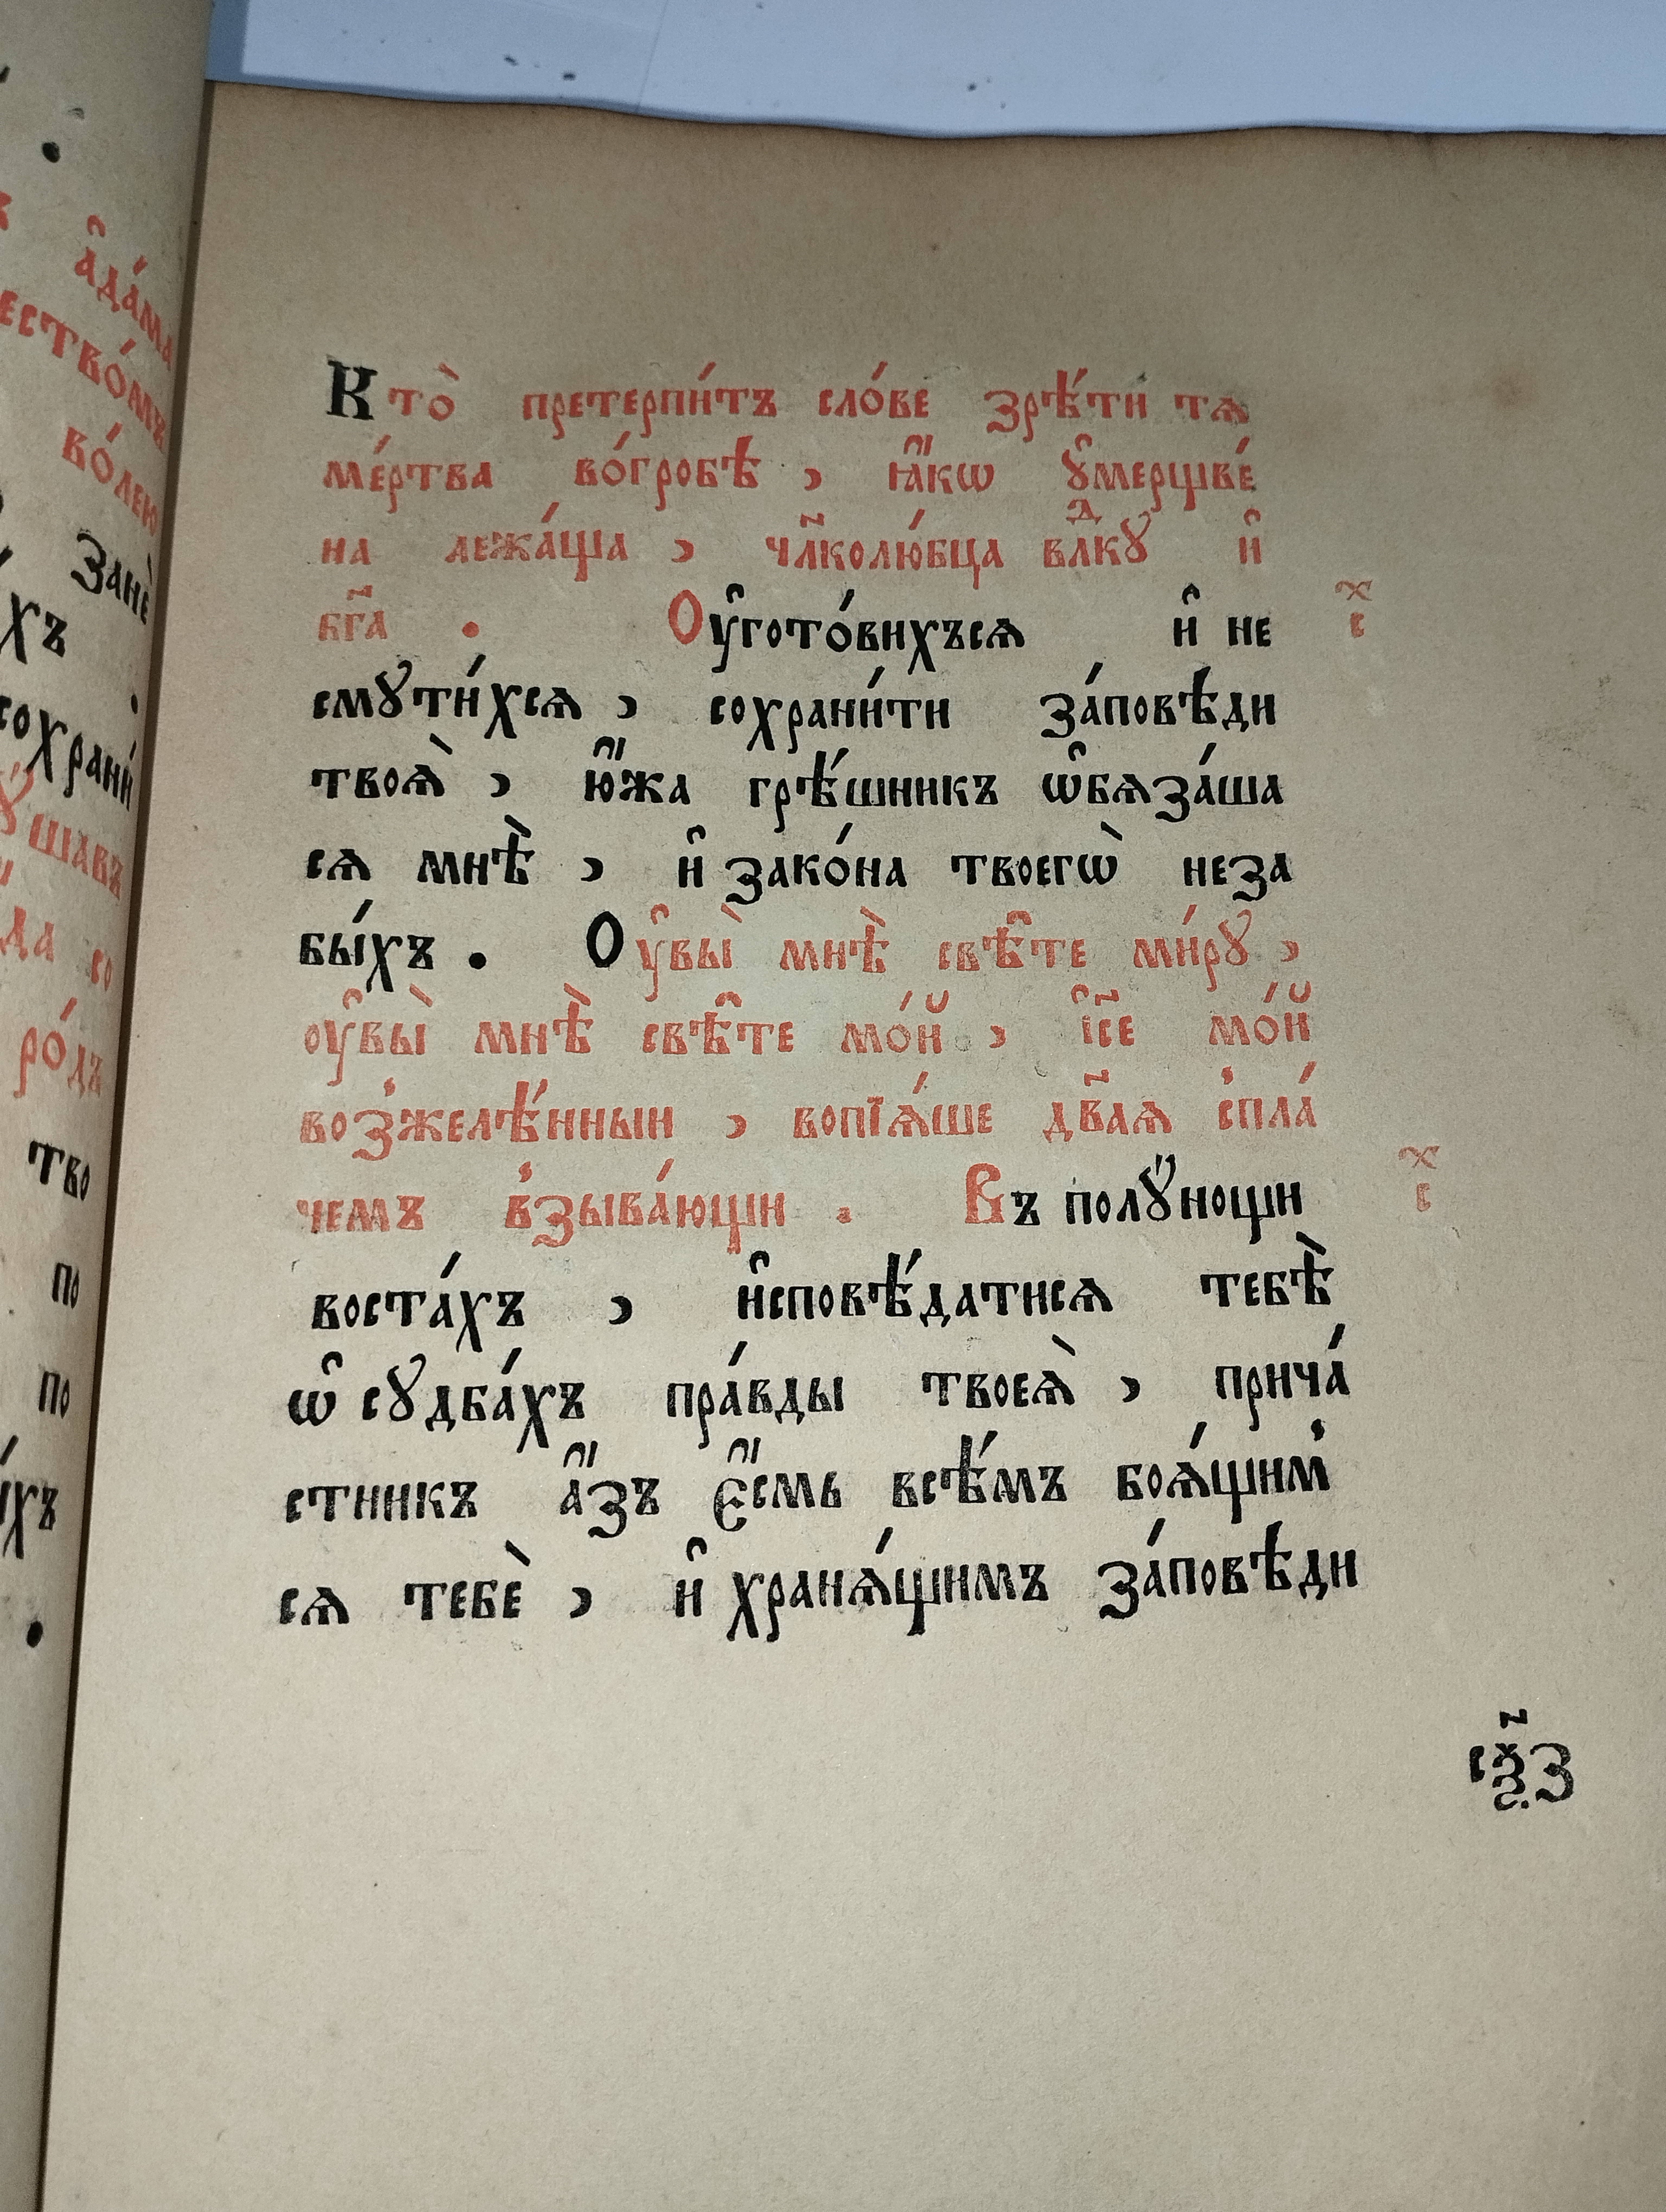 а҆да́ма
ество́мъ
во́лею
Занѐ
хъ
сохрани́
ꙋшавъ
да со
ро́дъ
тво
по
по
хъ
Кто̀ претерпи́тъ сло́ве зрѣ́ти тѧ
ме́ртва во́гробѣ , ꙗ҆́кѡ ꙋ҆мерщве́
на лежа́ща , чл҃колю́бца влⷣкꙋ и҆
бг҃а . Оу҆гото́вихъсѧ и҆ не
смꙋти́хсѧ , сохрани́ти за́повѣди
твоѧ̀ , ю҆́жа грѣ́шникъ ѡ҆бѧза́ша
сѧ мнѣ̀ , и҆ зако́на твоегѡ̀ неза
бы́хъ . Оу҆вы̀ мнѣ̀ свѣ҆те ми́рꙋ ,
оу҆вы̀ мнѣ̀ свѣ҆те мо́й , і҆с҃е мо́й
воз̾желѣ́нныи , вопїѧ́ше дв҃аѧ с̾пла́
чемъ в̾зыва́ющи . Въ полꙋ́нощи
воста́хъ , и҆сповѣ́датисѧ тебѣ̀
ѡ҆ сꙋдба́хъ пра́вды твоеѧ̀ , прича́
стникъ а҆́зъ є҆́смь всѣ́мъ боѧ́щим̾
сѧ тебѐ , и҆ хранѧ́щимъ за́повѣди
сⷯ
сⷯ